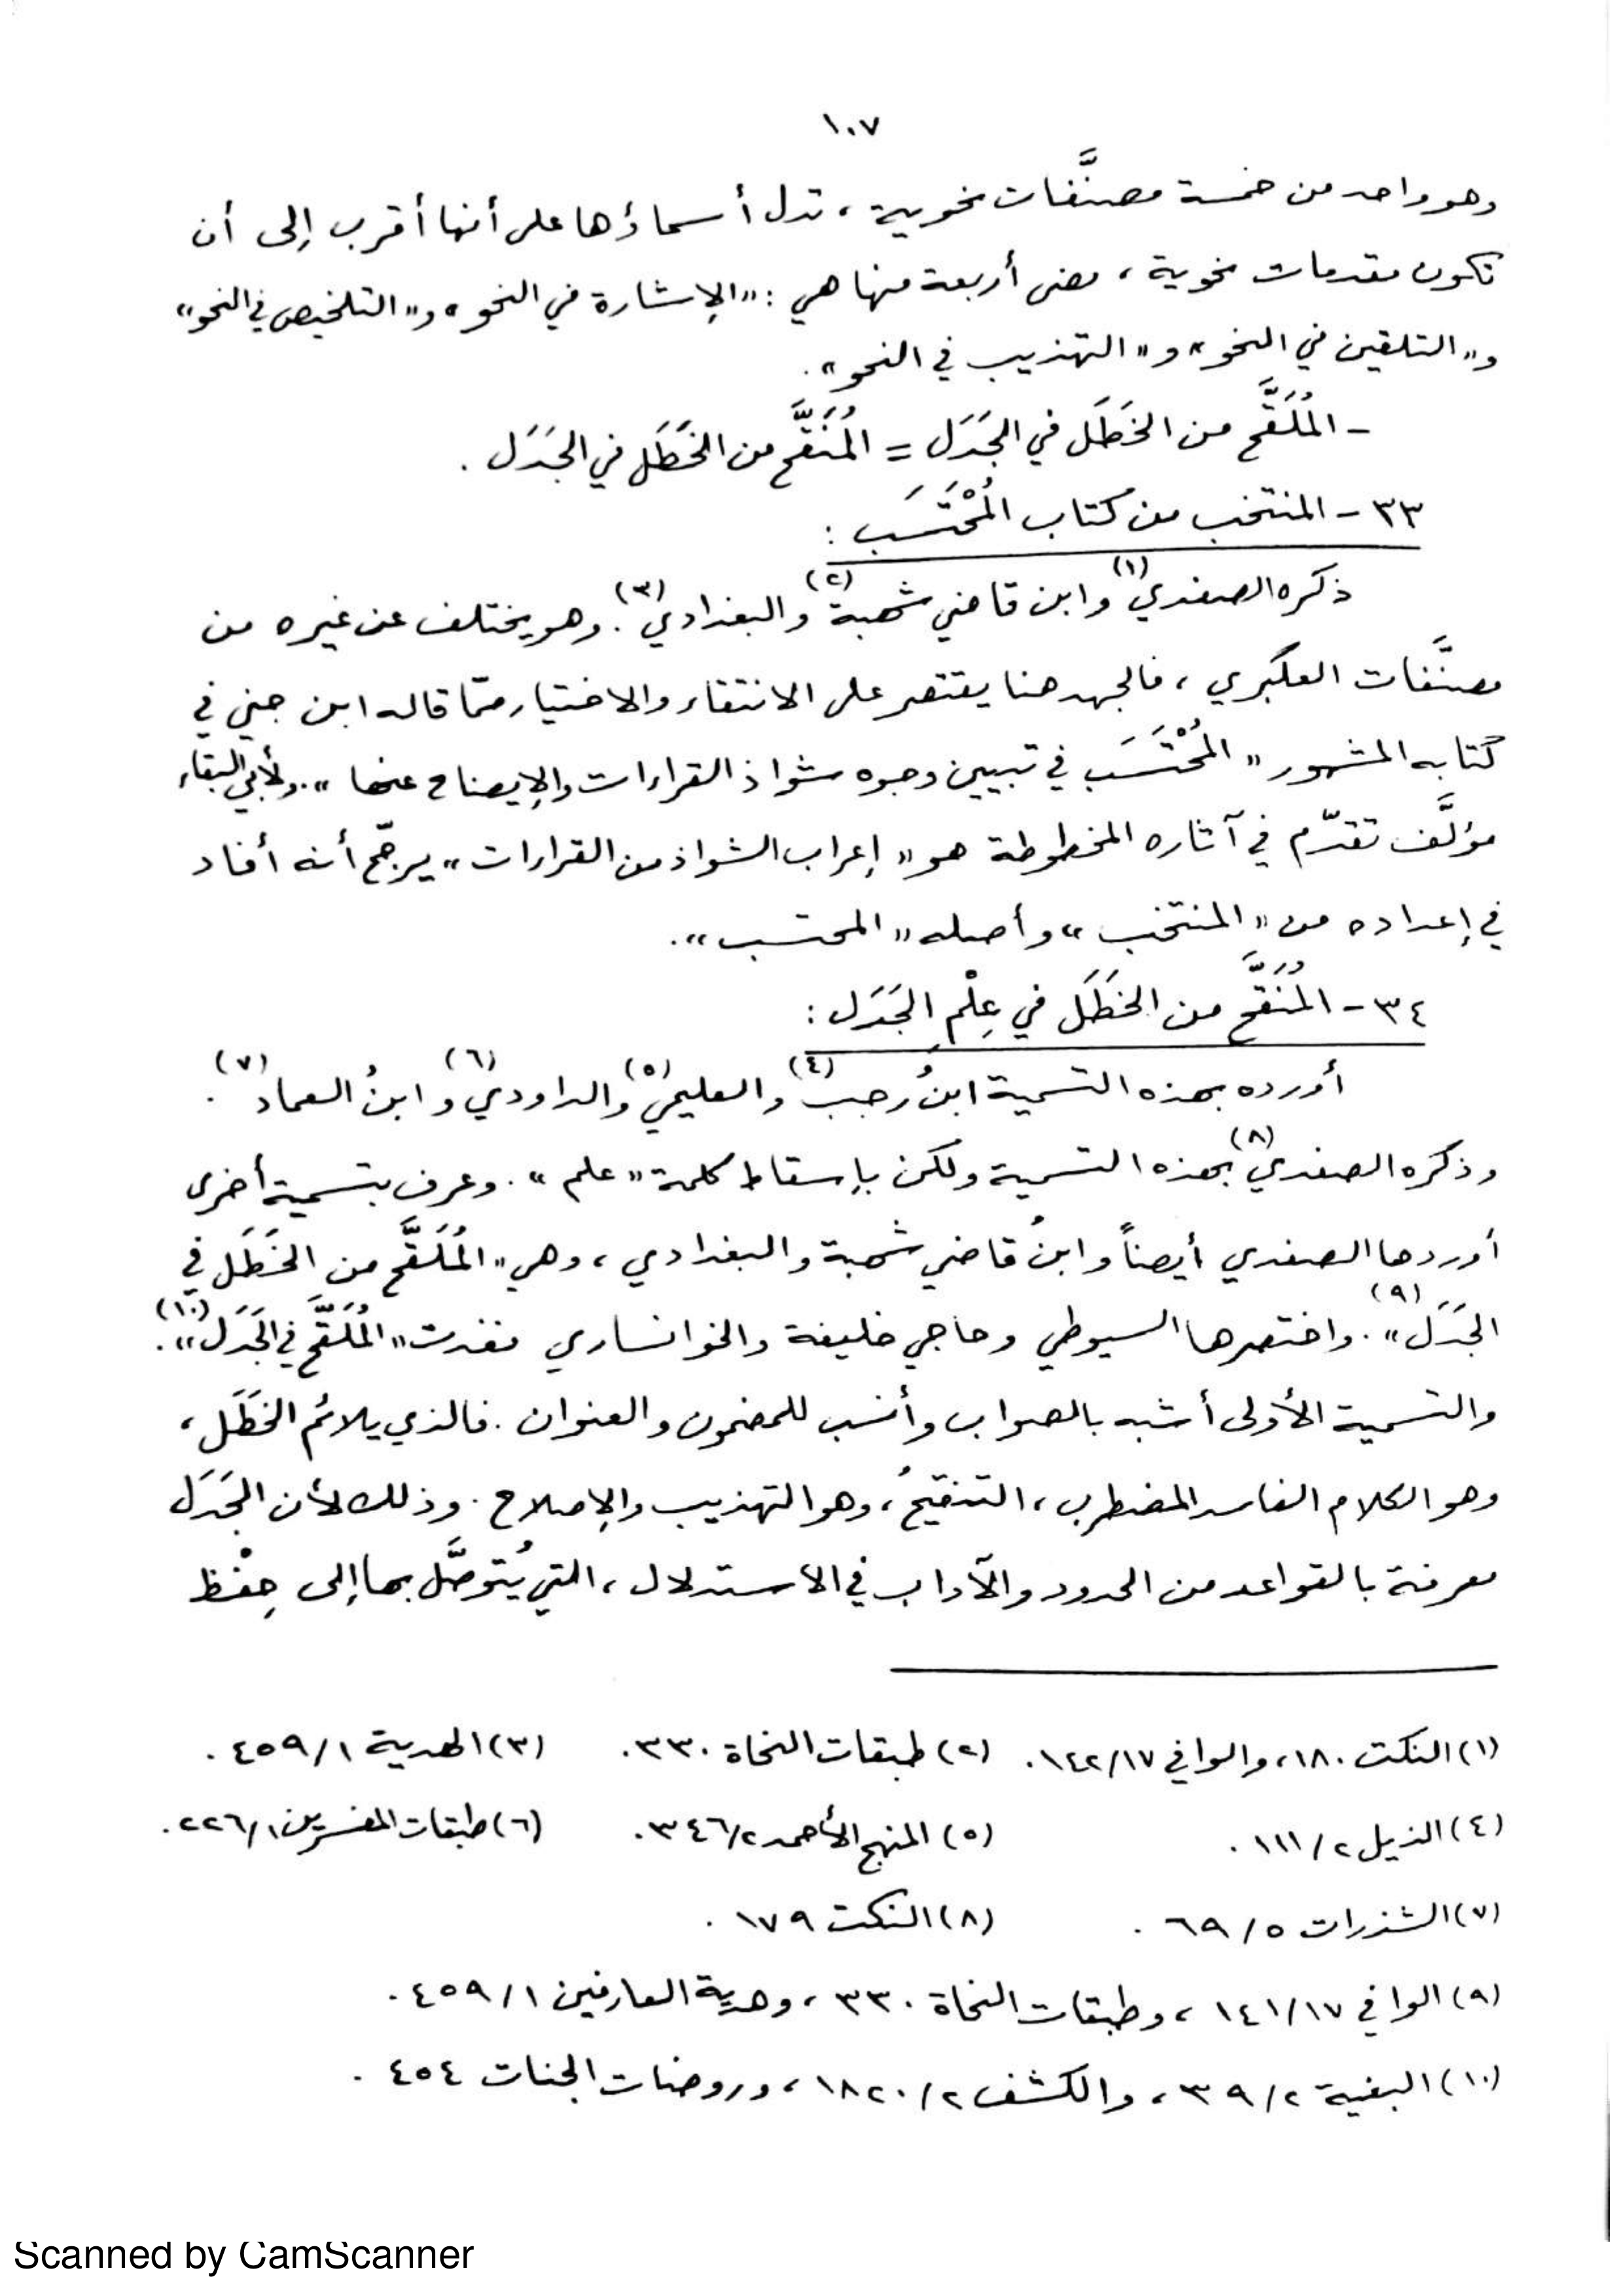 ١٠٧
وهو واحد من خمسة مصنَّفات نحوية ، تدل أسماؤها على أنها أقرب إلى أن
تكون مقدمات نحوية ، مضى أربعة منها هي : «الإشارة في النحو» و«التلخيص في النحو»
و«التلقين في النحو» و«التهذيب في النحو» .
- المُلَقَّح من الخَطَل في الجَدَل = المُنَقَّح من الخَطَل في الجَدَل .
٣٣ - المنتخب من كتاب المُحْتَسَب :
ذكره الصفدي(١) وابن قاضي شهبة(٢) والبغدادي(٣) . وهو يختلف عن غيره من
مصنَّفات العكبري ، فالجهد هنا يقتصر على الانتقاء والاختيار ممّا قاله ابن جني في
كتابه المشهور «المُحْتَسَب في تبيين وجوه شواذ القراءات والإيضاح عنها» . ولأبي البقاء
مؤلَّف تقدّم في آثاره المخطوطة هو «إعراب الشواذ من القراءات» يرجّح أنه أفاد
في إعداده من «المنتخب» وأصله «المحتسب» .
٣٤ - المُنَقَّح من الخَطَل في عِلْمِ الجَدَل :
أورده بهذه التسمية ابنُ رجب(٤) والعليمي(٥) والداودي(٦) وابنُ العماد(٧) .
وذكره الصفدي(٨) بهذه التسمية ولكن بإسقاط كلمة «علم» . وعرف بتسمية أخرى
أوردها الصفدي أيضاً وابنُ قاضي شهبة والبغدادي ، وهي «المُلَقَّح من الخَطَل في
الجَدَل»(٩) . واختصرها السيوطي وحاجي خليفة والخوانساري فغدت «المُلَقَّح في الجَدَل»(١٠) .
والتسمية الأولى أشبه بالصواب وأنسب للمضمون والعنوان . فالذي يلائم الخَطَل ،
وهو الكلام الفاسد المضطرب ، التنقيحُ ، وهو التهذيب والإصلاح . وذلك لأن الجَدَل
معرفة بالقواعد من الحدود والآداب في الاستدلال ، التي يُتوصَّل بها إلى حِفْظ
(١) النكت ١٨٠ ، والوافي ١٤٢/١٧ . (٢) طبقات النحاة ٣٣٠ . (٣) الهدية ٤٥٩/١ .
(٤) الذيل ١١١/٢ . (٥) المنهج الأحمد ٣٤٦/٢ . (٦) طبقات المفسرين ٢٢٦/١ .
(٧) الشذرات ٦٩/٥ . (٨) النكت ١٧٩ .
(٩) الوافي ١٤١/١٧ ، وطبقات النحاة ٣٣٠ ، وهدية العارفين ٤٥٩/١ .
(١٠) البغية ٣٩/٢ ، والكشف ١٨٢٠/٢ ، وروضات الجنات ٤٥٤ .
Scanned by CamScanner